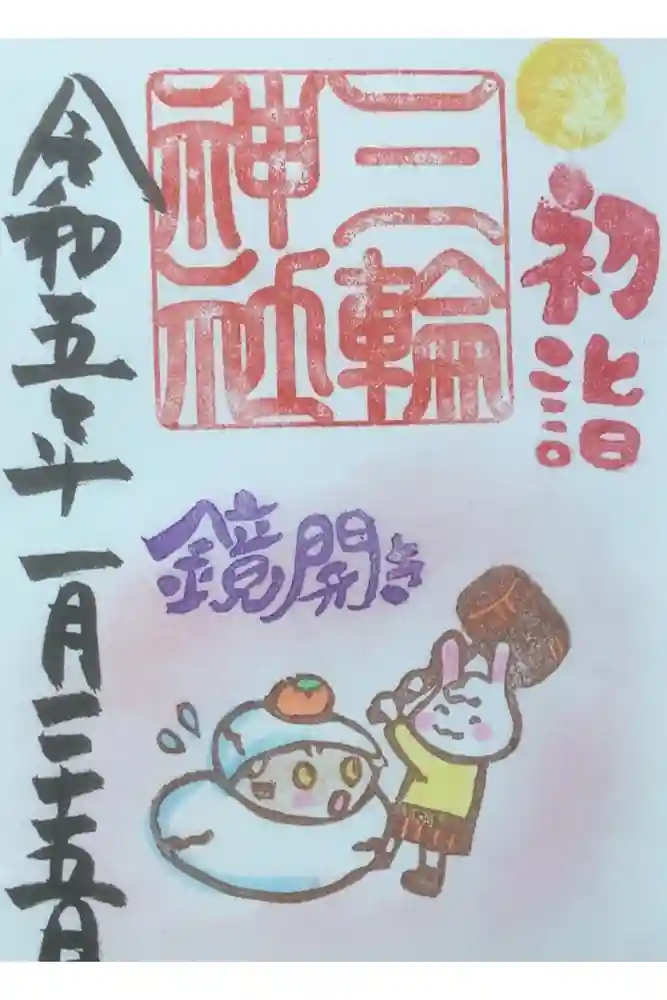 初詣
三輪
神社
令和五年 一月二十五日
鏡開き